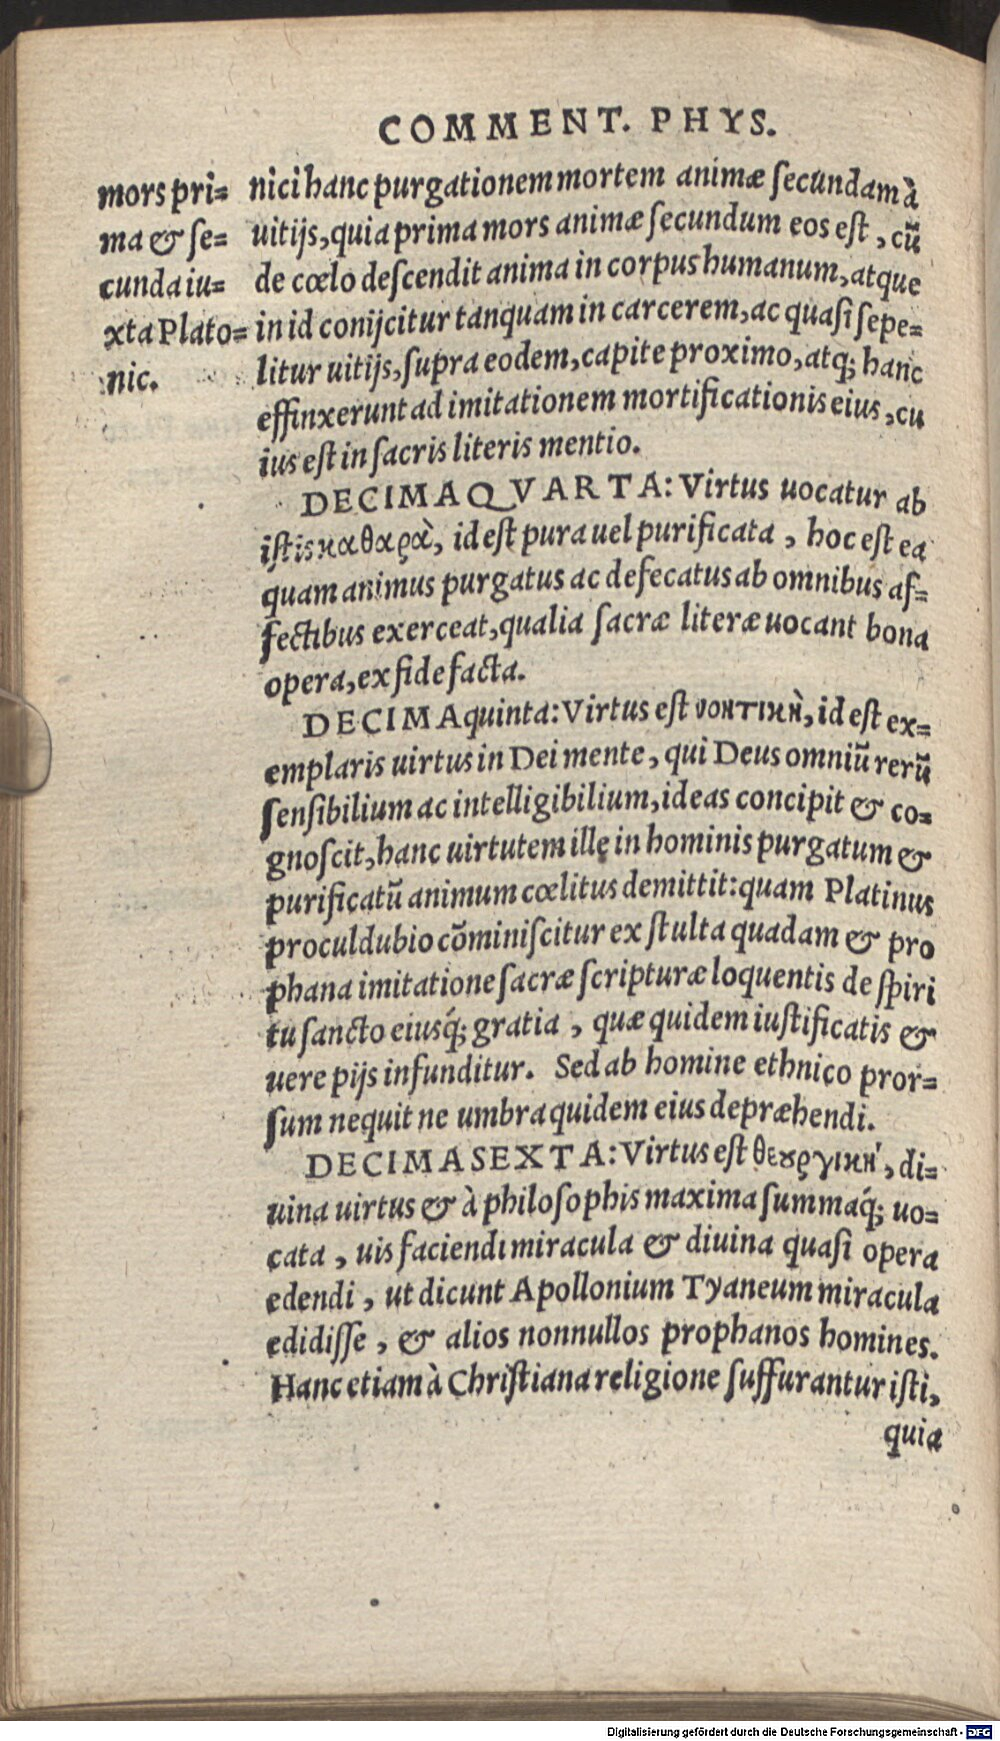 COMMENT. PHYS.
mors pri=
ma & ſe=
cunda iu=
xta Plato=
nic.
nici hanc purgationem mortem animæ ſecundam à
uitijs, quia prima mors animæ ſecundum eos eſt, cũ
de cœlo deſcendit anima in corpus humanum, atque
in id conijcitur tanquam in carcerem, ac quaſi ſepe=
litur uitijs, ſupra eodem, capite proximo, atq; hanc
effinxerunt ad imitationem mortificationis eius, cu
ius eſt in ſacris literis mentio.
DECIMAQVARTA: Virtus uocatur ab
iſtis καθαρὰ, id eſt pura uel purificata, hoc eſt ea
quam animus purgatus ac defecatus ab omnibus af=
fectibus exerceat, qualia ſacræ literæ uocant bona
opera, ex fide facta.
DECIMAquinta: Virtus eſt νοητικὴ, id eſt ex=
emplaris uirtus in Dei mente, qui Deus omniũ rerũ
ſenſibilium ac intelligibilium, ideas concipit & co=
gnoſcit, hanc uirtutem ille in hominis purgatum &
purificatũ animum cœlitus demittit: quam Platinus
proculdubio cõminiſcitur ex ſtulta quadam & pro
phana imitatione ſacræ ſcripturæ loquentis de ſpiri
tu ſancto eiusq́; gratia, quæ quidem iuſtificatis &
uere pijs infunditur. Sed ab homine ethnico pror=
ſum nequit ne umbra quidem eius depræhendi.
DECIMASEXTA: Virtus eſt θεȣργικὴ, di=
uina uirtus & à philoſophis maxima ſummaq́; uo=
cata, uis faciendi miracula & diuina quaſi opera
edendi, ut dicunt Apollonium Tyaneum miracula
edidiſſe, & alios nonnullos prophanos homines.
Hanc etiam à Chriſtiana religione ſuffurantur iſti,
quia
Digitalisierung gefördert durch die Deutsche Forschungsgemeinschaft - DFG